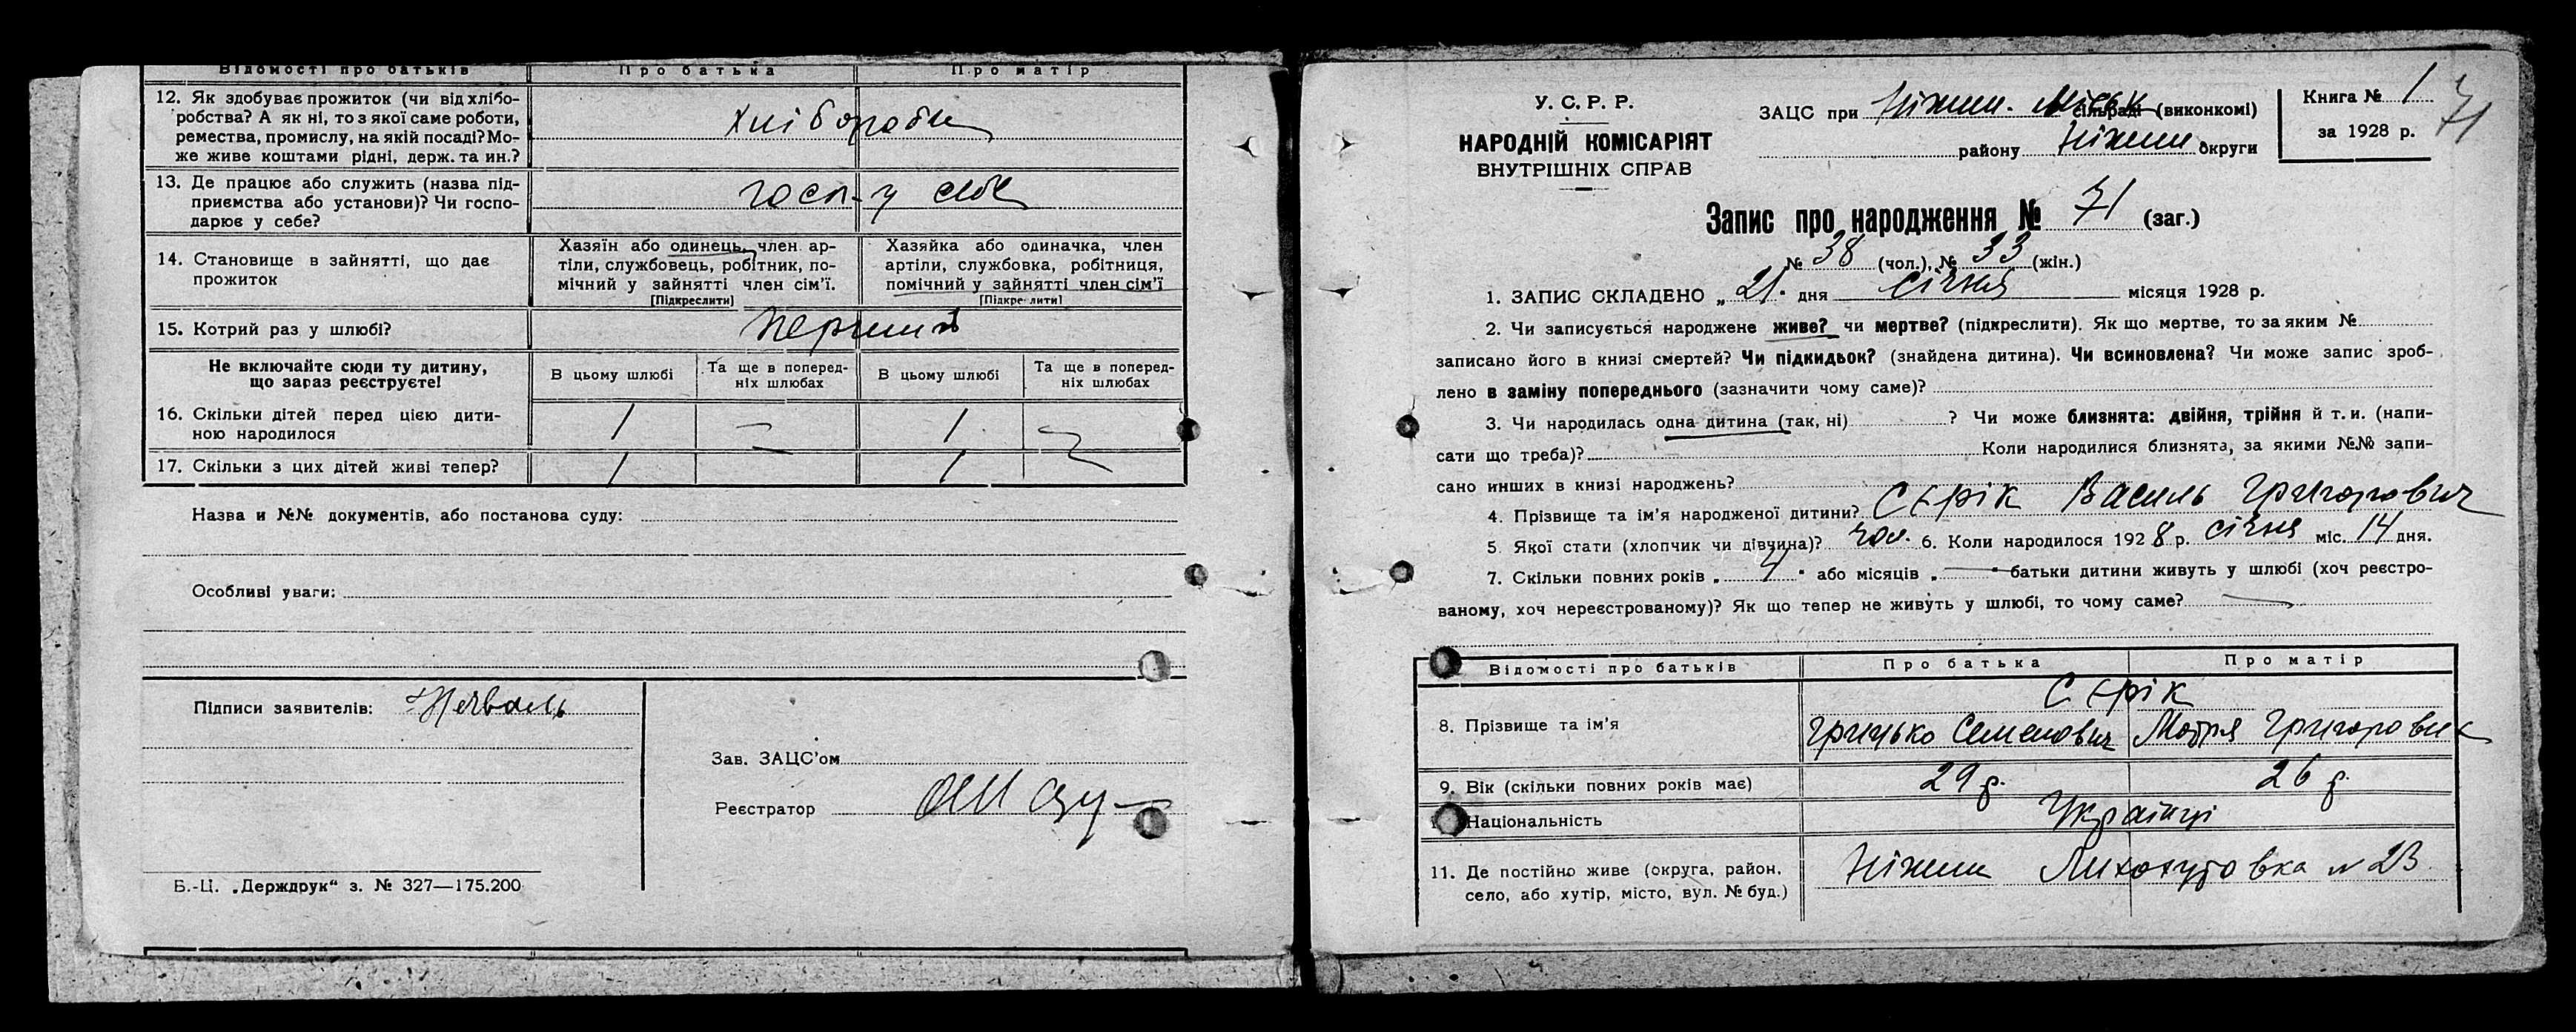 Відомості про батьків Про батька Про матір
12. Як здобуває прожиток (чи від хлібо-
робства? А як ні, то з якої саме роботи,
ремества, промислу, на якій посаді? Мо-
же живе коштами рідні, держ. та ин.?
хлібороби
13. Де працює або служить (назва під-
приємства або установи)? Чи госпо-
дарює у себе?
госп. у себе
14. Становище в зайнятті, що дає
прожиток
Хазяїн або одинець, член ар-
тіли, службовець, робітник, по-
мічний у зайнятті член сім'ї.
[Підкреслити]
Хазяйка або одиначка, член
артіли, службовка, робітниця,
помічний у зайнятті член сім'ї
[Підкреслити]
15. Котрий раз у шлюбі? перший
Не включайте сюди ту дитину,
що зараз реєструєте!
В цьому шлюбі
Та ще в поперед-
ніх шлюбах
В цьому шлюбі
Та ще в поперед-
ніх шлюбах
16. Скільки дітей перед цією дити-
ною народилося
1 — 1 —
17. Скільки з цих дітей живі тепер? 1 1
Назва и №№ документів, або постанова суду:
Особливі уваги:
Підписи заявителів:
Зав. ЗАЦС'ом
Реєстратор
Б.-Ц. „Держдрук“ з. № 327—175.200
У. С. Р. Р.
НАРОДНІЙ КОМІСАРІЯТ
ВНУТРІШНІХ СПРАВ
ЗАЦС при Ніжин. Міськ сільраді (виконкомі)
району Ніжин округи
Книга № 1
за 1928 р.
71
Запис про народження № 71 (заг.)
№ 38 (чол.), № 33 (жін.)
1. ЗАПИС СКЛАДЕНО „21“ дня січня місяця 1928 р.
2. Чи записується народжене живе? чи мертве? (підкреслити). Як що мертве, то за яким №
записано його в книзі смертей? Чи підкидьок? (знайдена дитина). Чи всиновлена? Чи може запис зроб-
лено в заміну попереднього (зазначити чому саме)?
3. Чи народилась одна дитина (так, ні) ? Чи може близнята: двійня, трійня й т. и. (напи-
сати що треба)? Коли народилися близнята, за якими №№ запи-
сано инших в книзі народжень?
4. Прізвище та ім'я народженої дитини? Сєрік Василь Григорович
5. Якої стати (хлопчик чи дівчина)? чол. 6. Коли народилося 1928 р. січня міс. 14 дня.
7. Скільки повних років „ 4 “ або місяців „ — “ батьки дитини живуть у шлюбі (хоч реєстро-
ваному, хоч нереєстрованому)? Як що тепер не живуть у шлюбі, то чому саме? —
Відомості про батьків Про батька Про матір
Сєрік
8. Прізвище та ім'я Грицько Семенович Мотря Григоровна
9. Вік (скільки повних років має) 29 р. 26 р.
Національність Українці
11. Де постійно живе (округа, район,
село, або хутір, місто, вул. № буд.)
Ніжин № 23